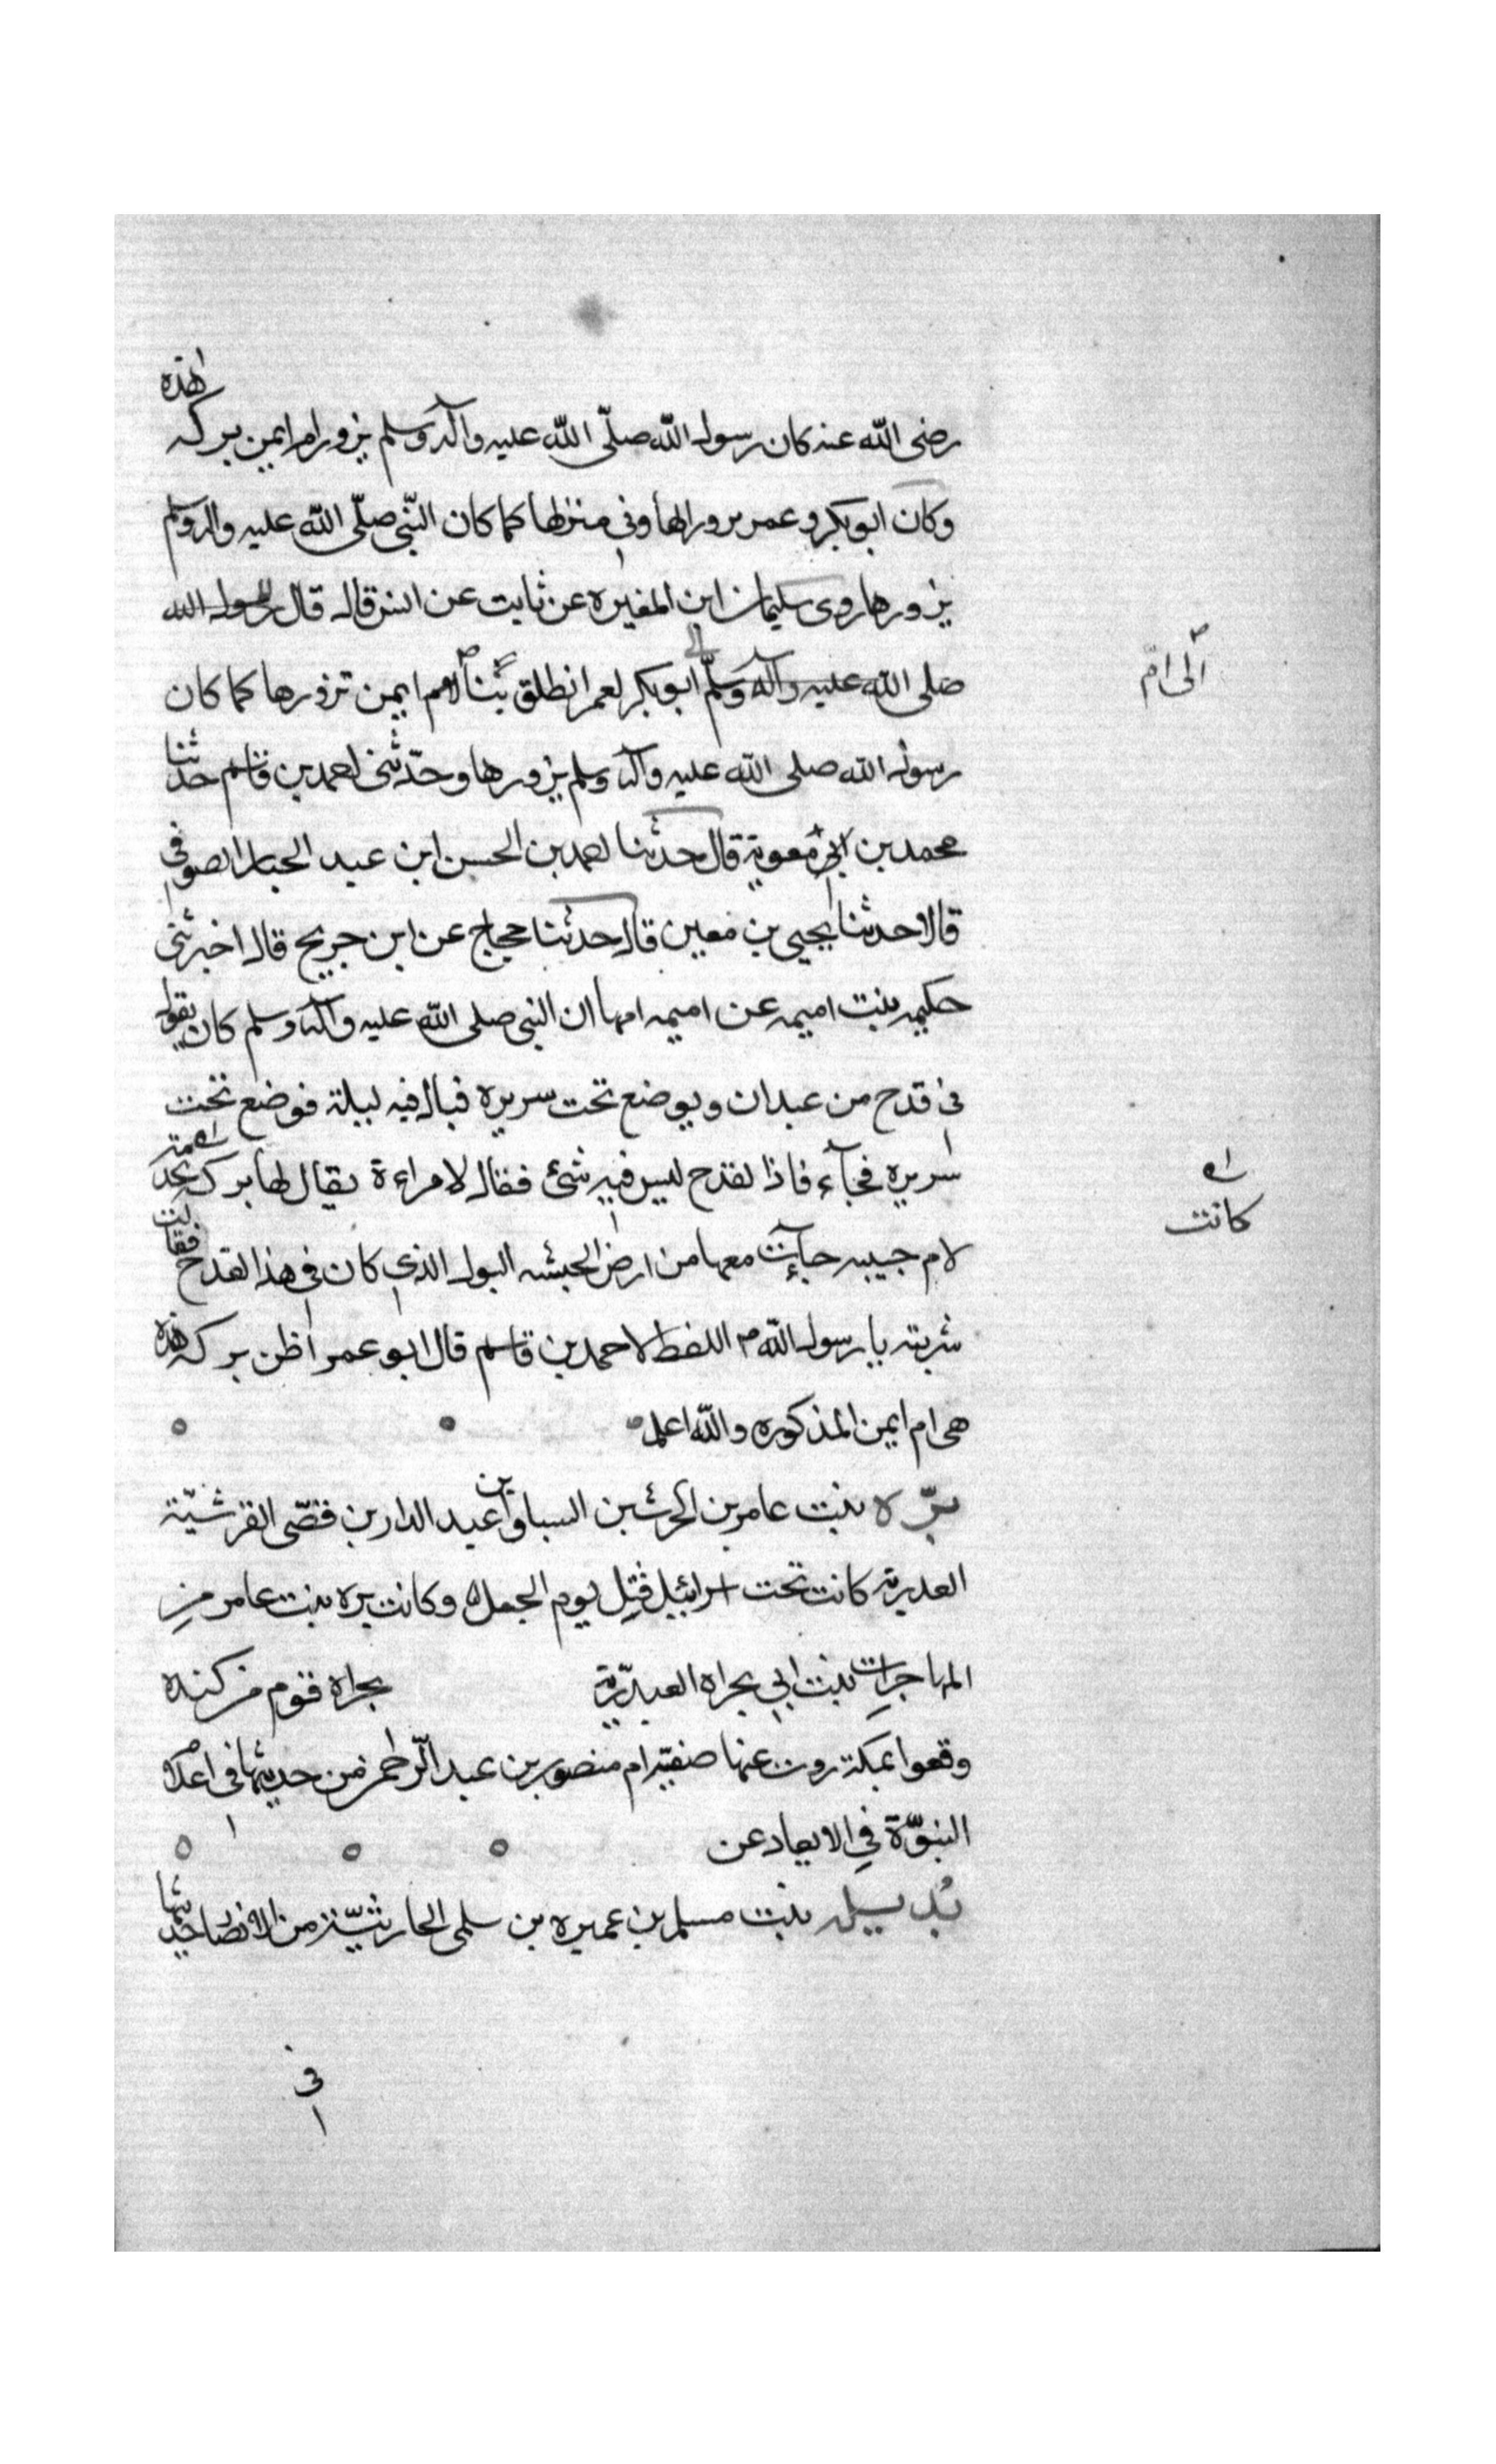 رضى الله عنه كان رسول الله صلّى الله عليه وآله وسلم يزور ام ايمن بركه هذه
وكان ابو بكر و عمر يزورانها فى منزلها كما كان النّبى صلّى الله عليه واله وسلم
يزورها روى سليمان ابن المغيره عن ثابت عن انس قال قال رسول الله
صلى الله عليه وآله وسلّم ابو بكر لعمر انطلق بنا لام ايمن نزورها كما كان
الى امّ
رسول الله صلى الله عليه وآله وسلم يزورها وحدّثنى احمد بن قاسم حدثنا
محمد بن معوية قال حدثنا احمد بن الحسن ابن عبد الجبار الصوفى
قال حدثنا يحيى بن معين قال حدثنا حجاج عن ابن جريج قال اخبرتنى
حكيمه بنت اميمه عن اميمه امها ان النبى صلى الله عليه وآله وسلم كان يقول
فى قدح من عيدان ويوضع تحت سريره فبال فيه ليلة فوضع تحت
سريره فجآء فاذا لقدح ليس فيه شئ فقال لامراءة يقال لها بركه
كانت
لام حبيبه جآءت معها من ارض الحبشه البول الذى كان فى هذا القدح فقالت
شربته يا رسول الله اللفظ لاحمد بن قاسم قال ابو عمر اظن بركه هذه
هى ام ايمن المذكوره والله اعلم
برّه بنت عامر بن الحرث بن السباق بن عبد الدار بن قصّى القرشيّة
العبدرية كانت تحت اسرائيل قتل يوم الجمل وكانت بره بنت عامر من
المهاجرات بنت ابى بجراه العبدريّة بجراه قوم من كنده
وقعوا بمكة روت عنها صفيّه ام منصور بن عبد الرّحمن من حديثها فى اعلام
النبوّة فى الابعاد عن
بديله بنت مسلم بن عميره بن سلمى الحارثيّة من الانصار حديثها
فى